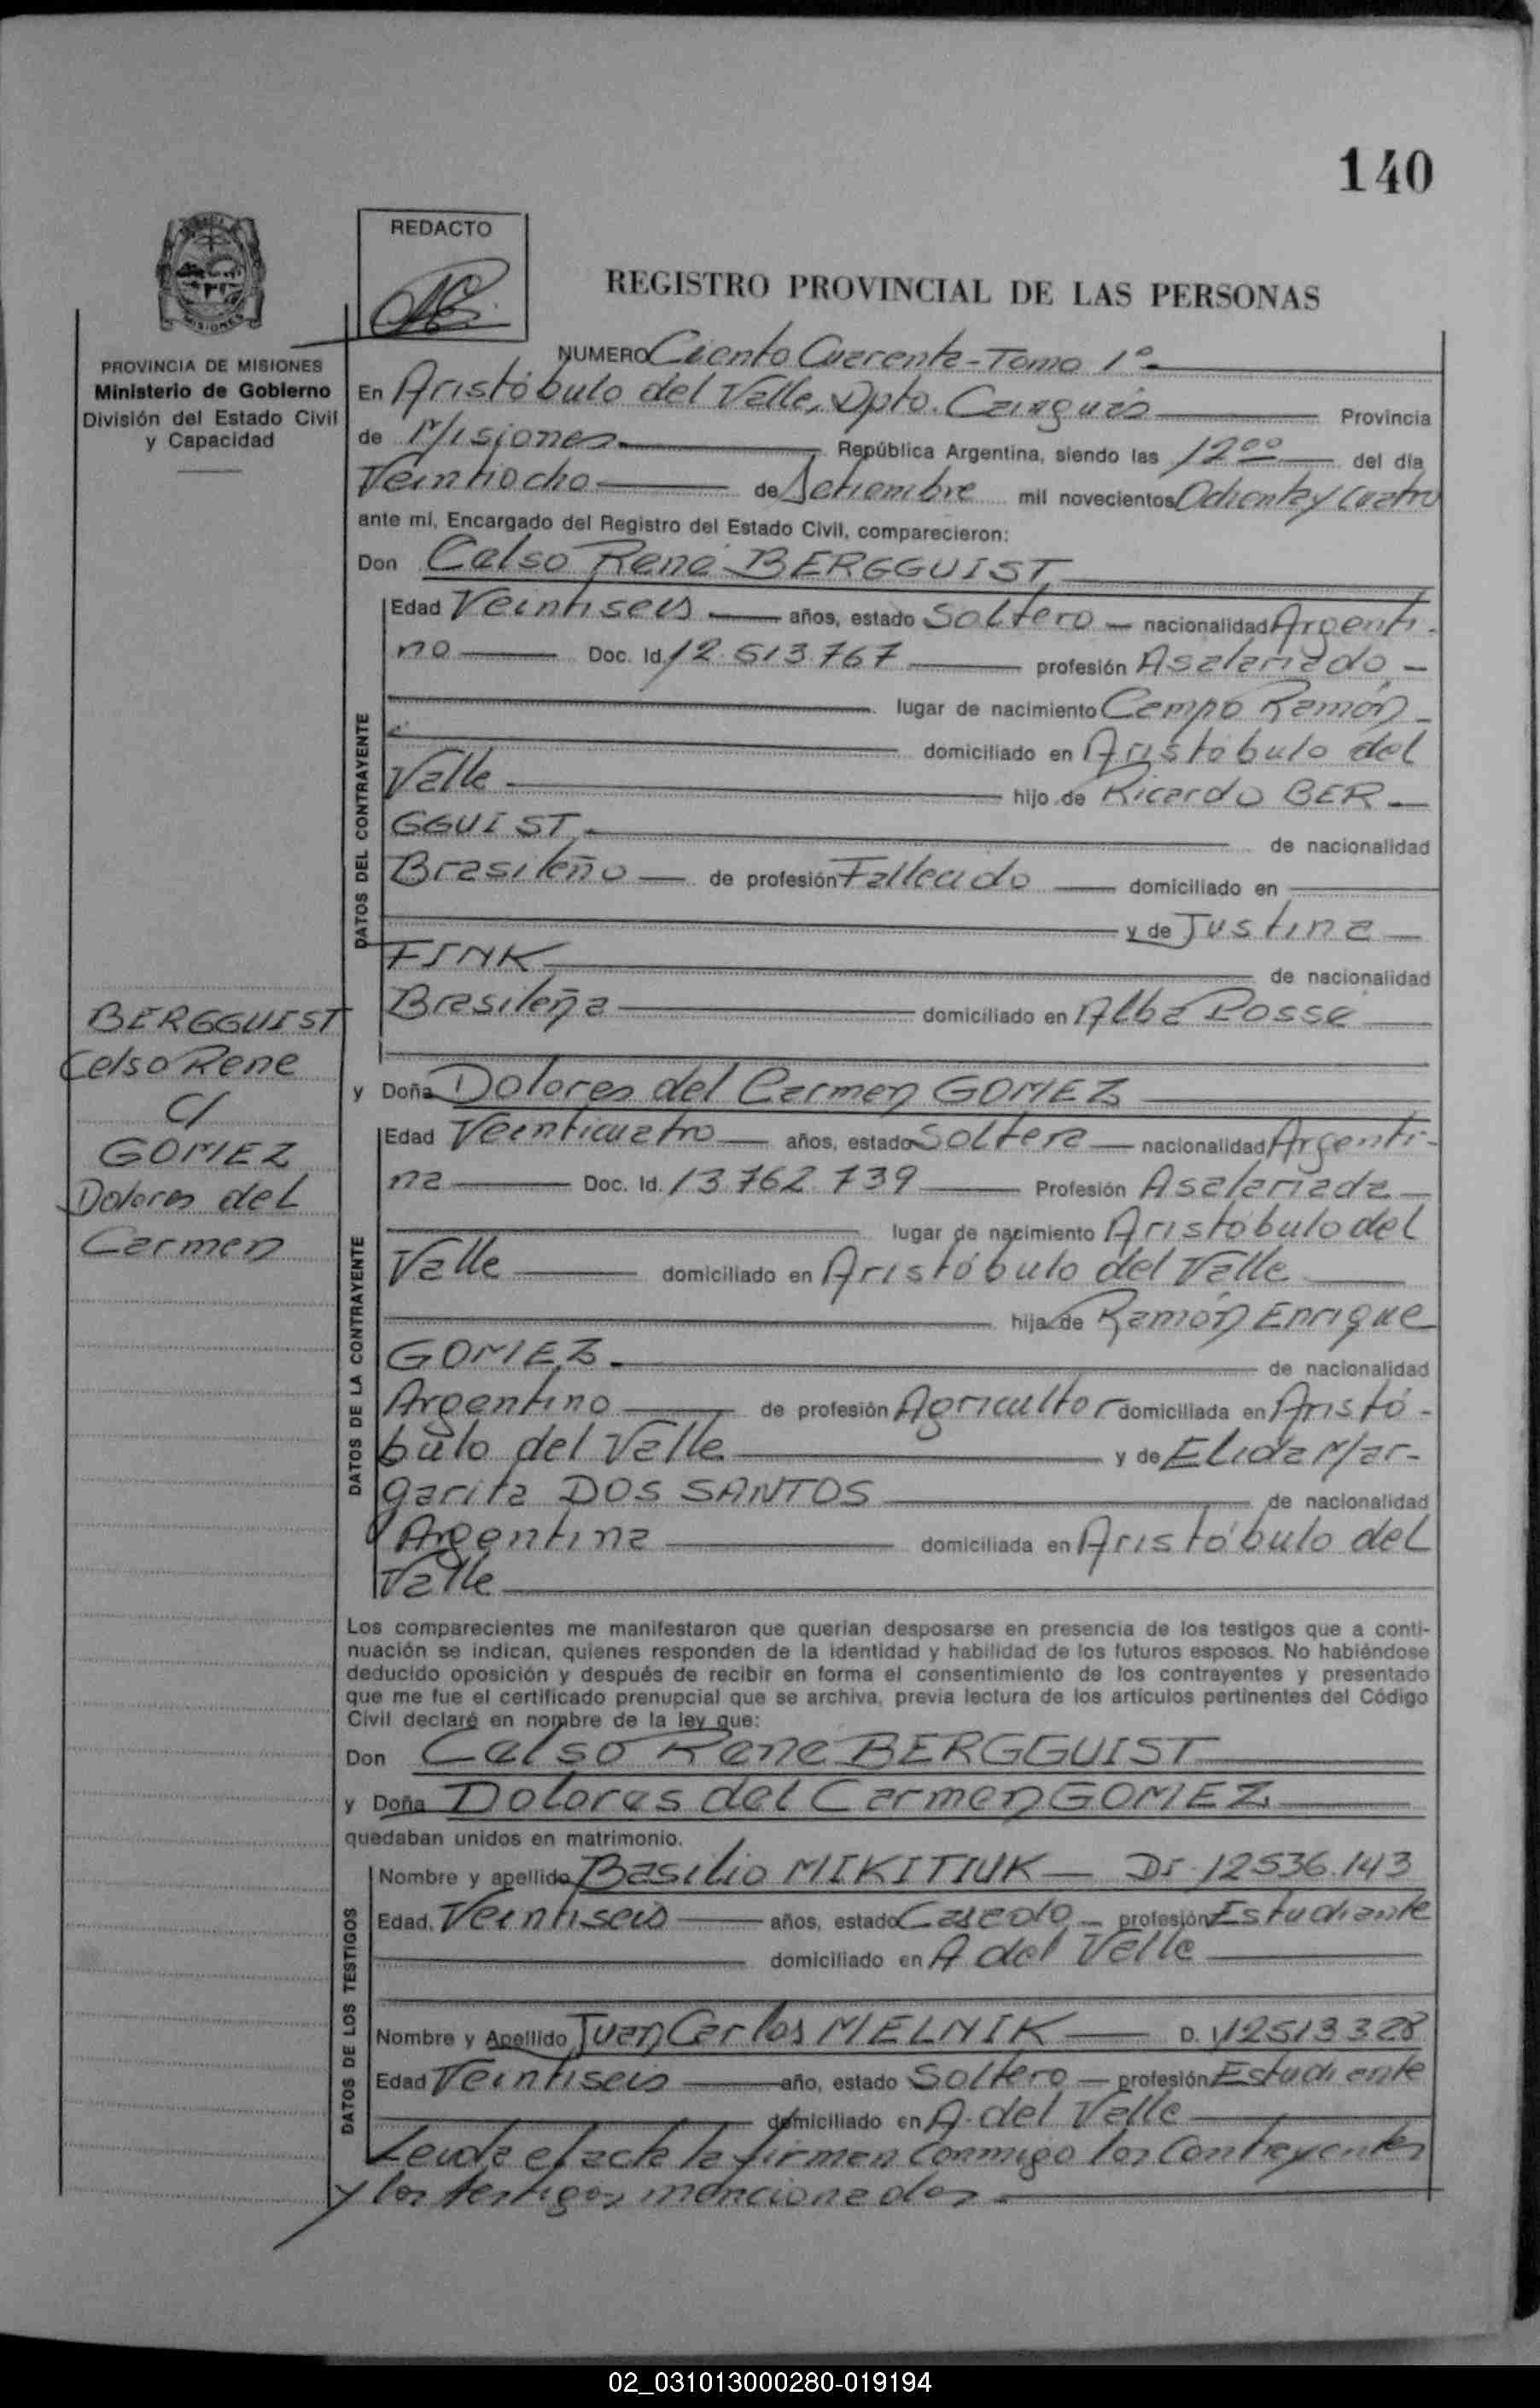 140
REDACTO
REGISTRO PROVINCIAL DE LAS PERSONAS
MISIONES
PROVINCIA DE MISIONES
Ministerio de Gobierno
División del Estado Civil
y Capacidad
NUMERO Ciento Cuarenta - Tomo 1º
En Aristóbulo del Valle, Dpto. Cainguás Provincia
de Misiones República Argentina, siendo las 12 00 del día
Veintiocho de Setiembre mil novecientos Ochenta y Cuatro
ante mí, Encargado del Registro del Estado Civil, comparecieron:
Don Celso René BERGGUIST,
Edad Veintiseis años, estado Soltero nacionalidad Argenti-
no Doc. Id. 12.513.767 profesión Asalariado
lugar de nacimiento Campo Ramón
domiciliado en Aristóbulo del
Valle hijo de Ricardo BER-
GGUIST, de nacionalidad
Brasileño de profesión Fallecido domiciliado en
y de Justina
FINK de nacionalidad
Brasileña domiciliado en Alba Posse
BERGGUIST
Celso Rene
C/
GOMEZ
Dolores del
Carmen
y Doña Dolores del Carmen GOMEZ
Edad Veinticuatro años, estado Soltera nacionalidad Argenti-
na Doc. Id. 13.762.739 Profesión Asalariada
lugar de nacimiento Aristóbulo del
Valle domiciliado en Aristóbulo del Valle
hija de Ramón Enrique
GOMEZ de nacionalidad
Argentino de profesión Agricultor domiciliada en Aristó-
bulo del Valle y de Elida Mar-
garita DOS SANTOS de nacionalidad
Argentina domiciliada en Aristóbulo del
Valle
DATOS DEL CONTRAYENTE
DATOS DE LA CONTRAYENTE
Los comparecientes me manifestaron que querían desposarse en presencia de los testigos que a conti-
nuación se indican, quienes responden de la identidad y habilidad de los futuros esposos. No habiéndose
deducido oposición y después de recibir en forma el consentimiento de los contrayentes y presentado
que me fue el certificado prenupcial que se archiva, previa lectura de los artículos pertinentes del Código
Civil declaré en nombre de la ley que:
Don Celso Rene BERGGUIST
y Doña Dolores del Carmen GOMEZ
quedaban unidos en matrimonio.
Nombre y apellido Basilio MIKITIUK DI 12536.143
Edad Veintiseis años, estado Casado profesión Estudiante
domiciliado en A del Valle
Nombre y Apellido Juan Carlos MELNIK D. I 12513328
Edad Veintiseis año, estado Soltero profesión Estudiante
domiciliado en A. del Valle
DATOS DE LOS TESTIGOS
Leida el acta la firman conmigo los Contrayentes
y los testigos mencionados
02_031013000280-019194